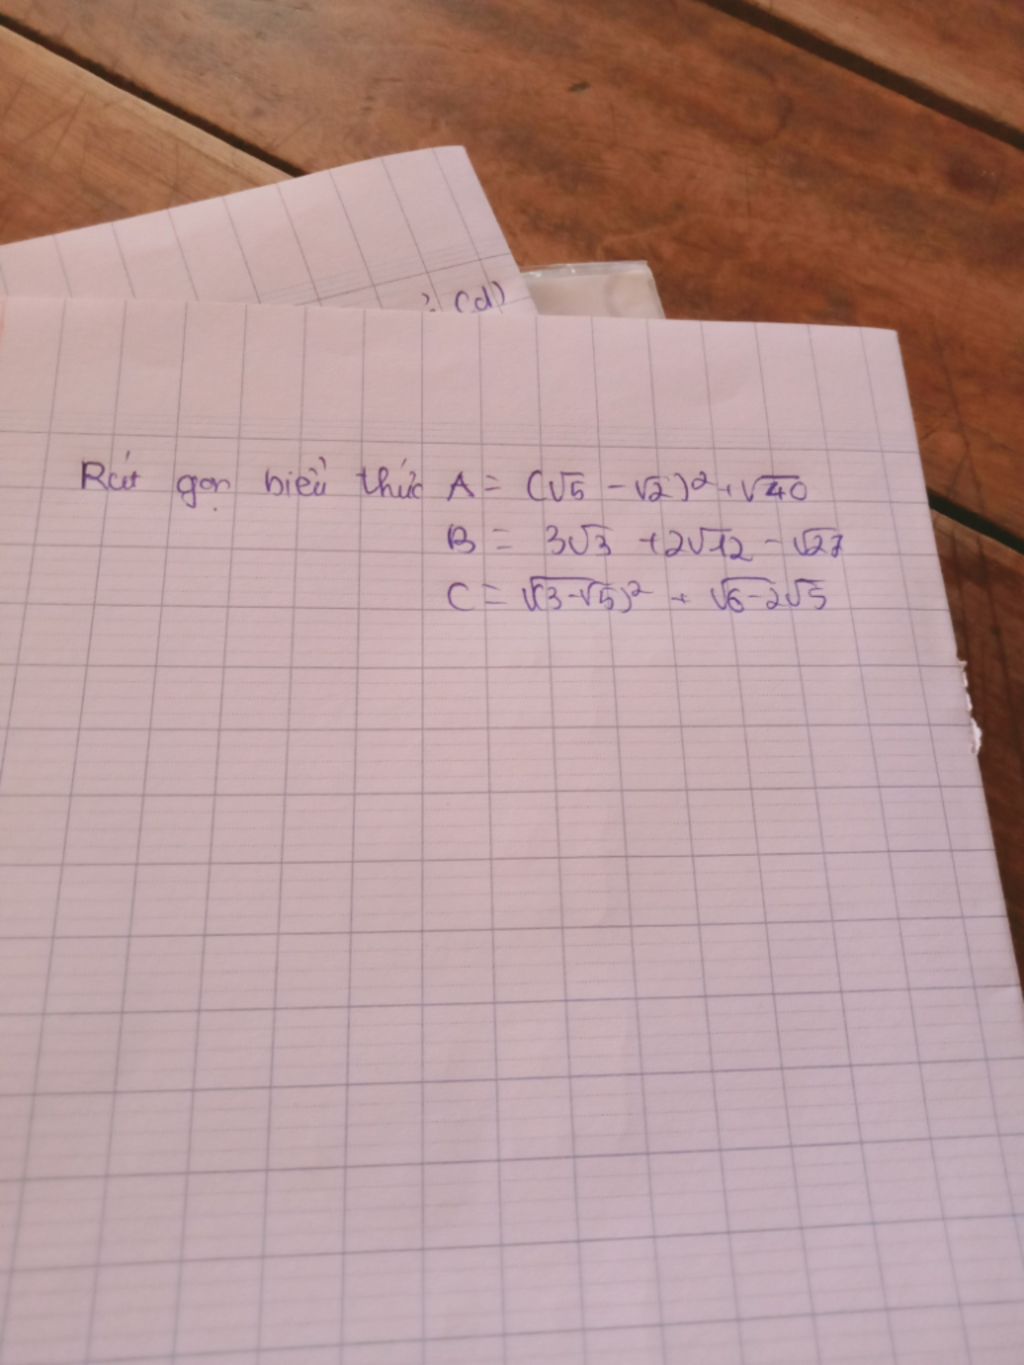 (d)
Rút gọn biểu thức A = (√5 - √2)² + √40
B = 3√3 + 2√12 - √27
C = √(3-√5)² + √6-2√5